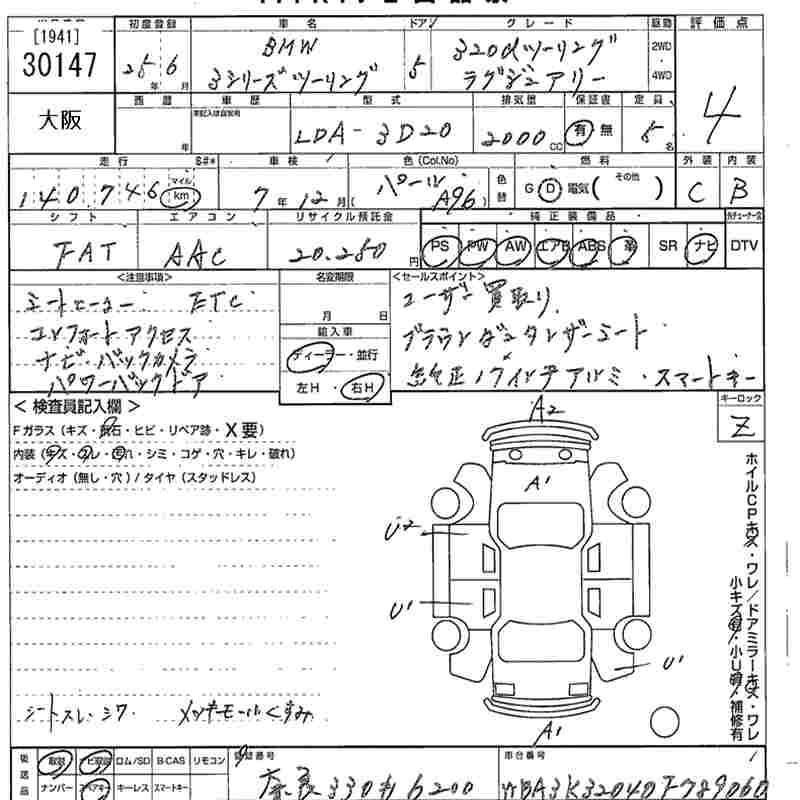 [1941]
30147
初度登録 車名 ドア グレード 駆動 評価点
25年6月 BMW 3シリーズツーリング 5 320dツーリング ラグジュアリー 2WD 4WD 4
大阪
西暦 車歴 型式 排気量 保証書 定員
年 LDA-3D20 2000cc 有 無 5名
走行 S#* 車検 色(Col.No) 燃料 外装 内装
140,746 マイル km 7年12月( パール A96 ) 色替 G D 電気( その他 ) C B
シフト エアコン リサイクル預託金 純正装備品
FAT AAC 20.280円 PS PW AW エアB ABS 革 SR ナビ DTV
<注意事項> 名変期限 <セールスポイント>
シートヒーター ETC
コンフォートアクセス
ナビ・バックカメラ
パワーバックドア
月 日
輸入車
ディーラー・並行
左H・右H
ユーザー買取り
ブラウンダコタレザーシート
純正17インチアルミ・スマートキー
<検査員記入欄> キーロック
Z
Fガラス(キズ・飛石・ヒビ・リペア跡・X要)
内装(キズ・スレ・汚れ・シミ・コゲ・穴・キレ・破れ)
オーディオ(無し・穴)/タイヤ(スタッドレス)
A2
A1
U2
U1
U1
A1
ホイルCPキズ・ワレ/ドアミラーキズ・ワレ
小キズ・小U・補修有
シートスレ・シワ メッキモールくすみ
後送品 取説 ナビ取説 ロム/SD B-CAS リモコン 登録番号 車台番号
ナンバー スペアキー キーレス スマートキー 奈良330 6200 WBA3K32040F789060